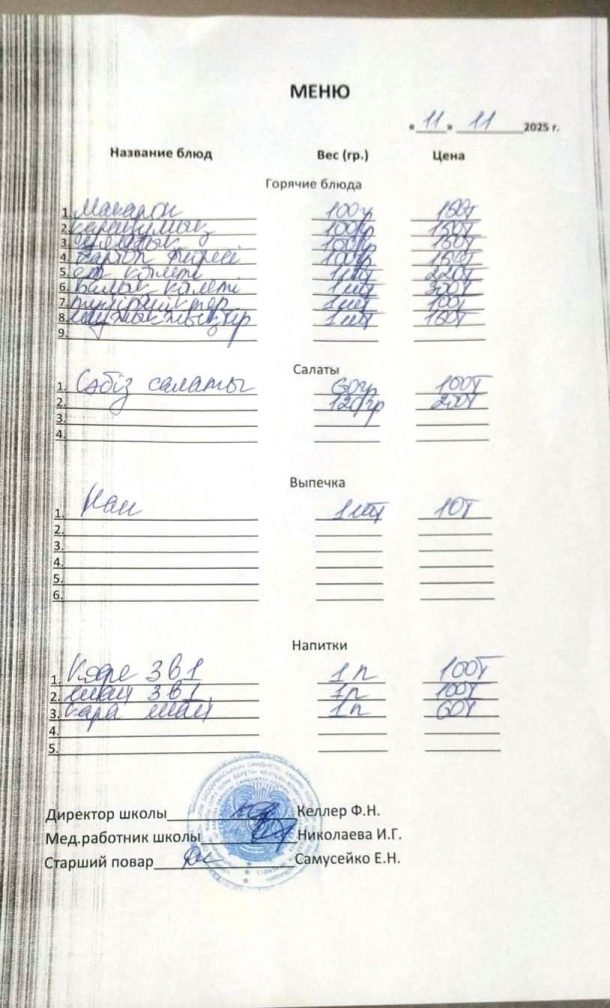 МЕНЮ
« 11 » 11 2025 г.
Название блюд Вес (гр.) Цена
Горячие блюда
1. Макарон 100гр 150т
2. қарақұмық 100гр 150т
3. 100гр 150т
4. картоп пюресі 100гр 150т
5. ет котлеті 1шт 220т
6. балық котлеті 1шт 300т
7. 1шт 100т
8. 1шт 160т
9.
Салаты
1. Сәбіз салаты 60гр 100т
2. 120гр 200т
3.
4.
Выпечка
1. Нан 1шт 10т
2.
3.
4.
5.
6.
Напитки
1. Кофе 3 в 1 1п 100т
2. шай 3 в 1 1п 100т
3. қара шай 1п 60т
4.
5.
Директор школы Келлер Ф.Н.
Мед.работник школы Николаева И.Г.
Старший повар Самусейко Е.Н.